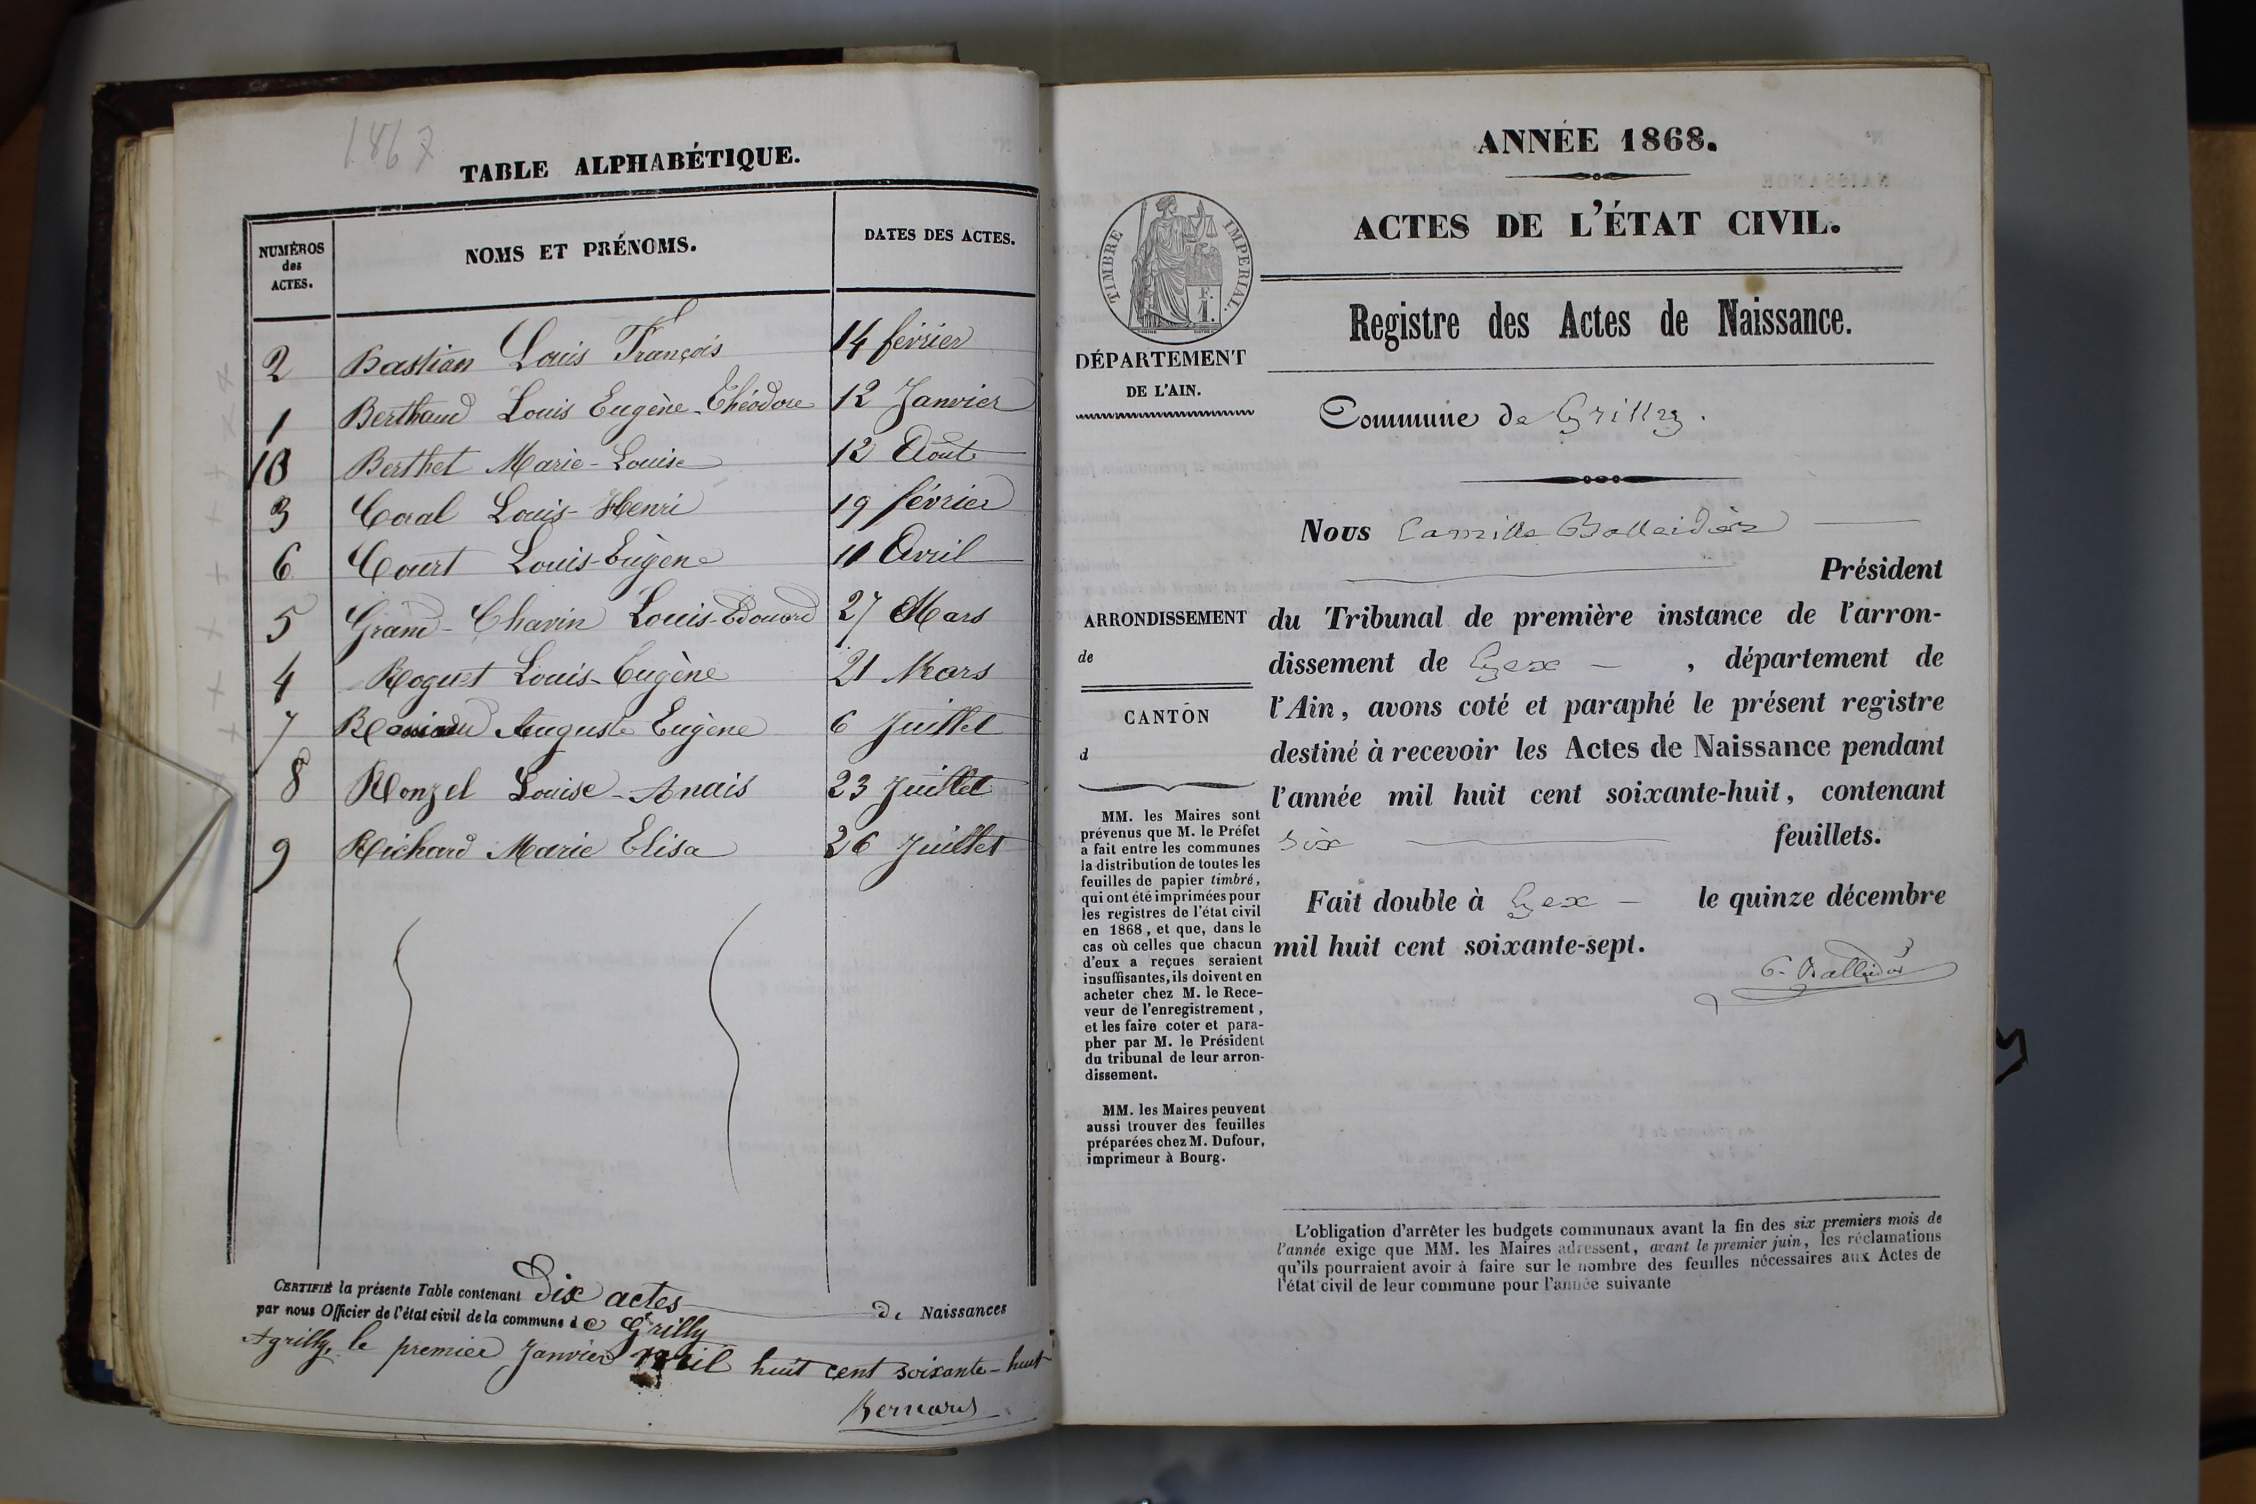 1867
TABLE ALPHABÉTIQUE.
NUMÉROS des ACTES. NOMS ET PRÉNOMS. DATES DES ACTES.
2 Bastian Louis François 14 février
1 Berthaud Louis Eugène Théodore 12 Janvier
10 Berthet Marie-Louise 12 Aout
3 Coral Louis-Henri 19 février
6 Court Louis-Eugène 11 Avril
5 Grand-Chavin Louis-Edouard 27 Mars
4 Roguet Louis-Eugène 21 Mars
7 Auguste Eugène 6 Juillet
8 Ronzel Louise-Anais 23 Juillet
9 Richard Marie Elisa 26 Juillet
CERTIFIÉ la présente Table contenant Dix actes de Naissances
par nous Officier de l'état civil de la commune de Grilly
A grilly, le premier Janvier mil huit cent soixante-huit
Bernard
ANNÉE 1868.
ACTES DE L'ÉTAT CIVIL.
TIMBRE IMPERIAL.
F.
1.
DÉPARTEMENT
DE L'AIN.
ARRONDISSEMENT
de
CANTON
d
MM. les Maires sont
prévenus que M. le Préfet
a fait entre les communes
la distribution de toutes les
feuilles de papier timbré,
qui ont été imprimées pour
les registres de l'état civil
en 1868, et que, dans le
cas où celles que chacun
d'eux a reçues seraient
insuffisantes, ils doivent en
acheter chez M. le Rece-
veur de l'enregistrement,
et les faire coter et para-
pher par M. le Président
du tribunal de leur arron-
dissement.
MM. les Maires peuvent
aussi trouver des feuilles
préparées chez M. Dufour,
imprimeur à Bourg.
Registre des Actes de Naissance.
Commune de Grilly.
Nous Camille Balleidier
Président
du Tribunal de première instance de l'arron-
dissement de Gex, département de
l'Ain, avons coté et paraphé le présent registre
destiné à recevoir les Actes de Naissance pendant
l'année mil huit cent soixante-huit, contenant
six feuillets.
Fait double à Gex le quinze décembre
mil huit cent soixante-sept.
L'obligation d'arrêter les budgets communaux avant la fin des six premiers mois de
l'année exige que MM. les Maires adressent, avant le premier juin, les réclamations
qu'ils pourraient avoir à faire sur le nombre des feuilles nécessaires aux Actes de
l'état civil de leur commune pour l'année suivante